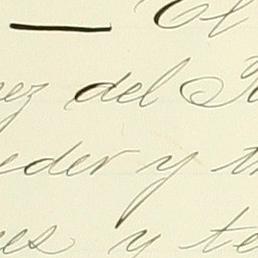 — El
ez del
eder y t
es y te